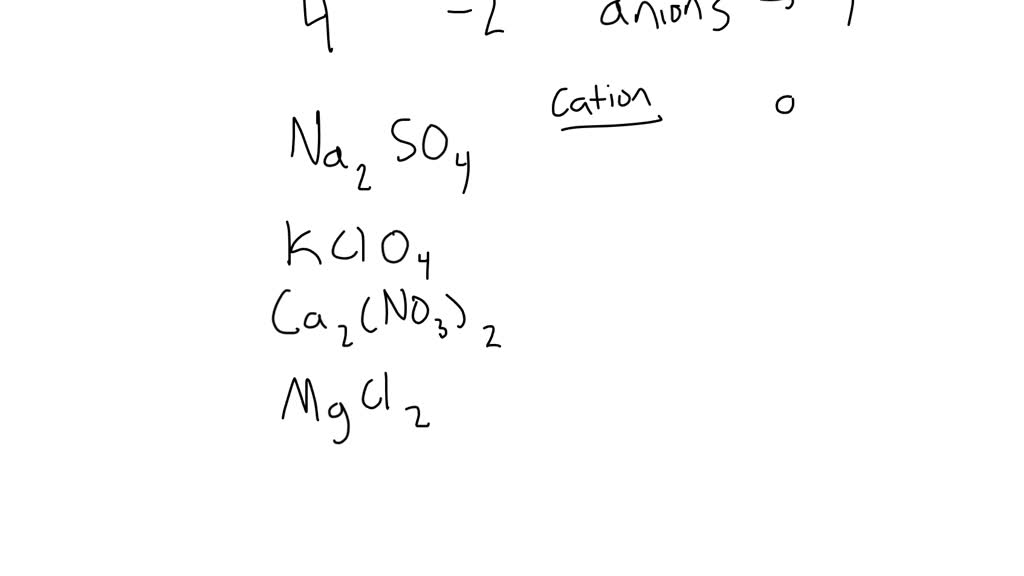 4 -2 anions
Cation o
Na2 SO4
KClO4
Ca2(NO3)2
MgCl2